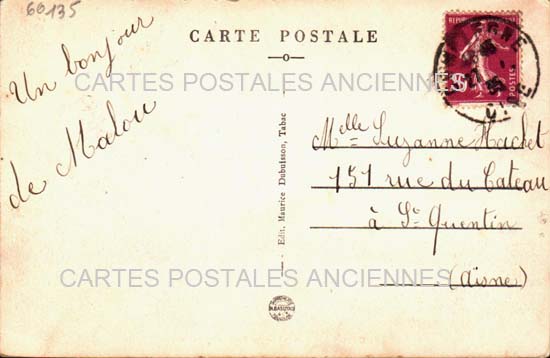 60135
CARTE POSTALE
Un bonjour
de Malou
CARTES POSTALES ANCIENNES
Edit. Maurice Dubuisson, Tabac
POSTES
Melle Suzanne Hachet
151 rue du Cateau
à St Quentin
(Aisne)
CARTES POSTALES ANCIENNES